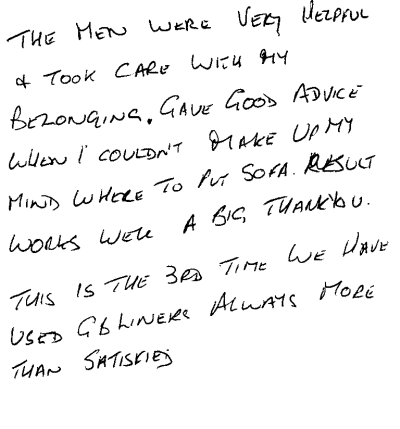 THE MEN WERE VERY HELPFUL
& TOOK CARE WITH MY
BELONGING. GAVE GOOD ADVICE
WHEN I COULDN'T MAKE UP MY
MIND WHERE TO PUT SOFA. RESULT
WORKS WELL A BIG THANKYOU.
THIS IS THE 3RD TIME WE HAVE
USED GB LINERS ALWAYS MORE
THAN SATISFIED